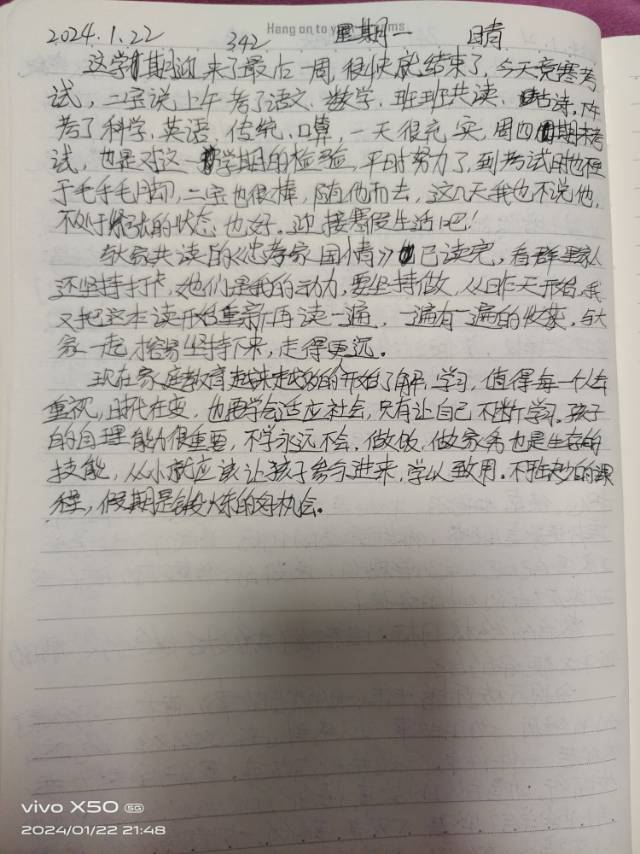 Hang on to your dreams.
2024.1.22 342 星期一 晴
这学期迎来了最后一周,很快就结束了,今天竞赛考
试,二宝说上午考了语文、数学、班班共读、古诗,下午
考了科学、英语、传统、口算,一天很充实,周四期末考
试,也是对这一学期的检验,平时努力了,到考试时也不至
于手毛脚,二宝也很棒,随他而去,这几天我也不说他,
不处于紧张的状态也好。迎接寒假生活吧!
与大家共读的《忠孝家国情》已读完,看群里家人
还坚持打卡,她们是我的动力,要坚持做,从昨天开始,我
又把这本读开始重新再读一遍,一遍有一遍的收获,与大
家一起才容易坚持下来,走得更远。
现在家庭教育越来越多的人开始了解,学习,值得每一个人去
重视,时代在变,也要学会适应社会,只有让自己不断学习。孩子
的自理能力很重要,不学永远不会,做饭,做家务也是生存的
技能,从小就应该让孩子参与进来,学以致用。不可缺少的课
程,假期是锻炼的好机会。
vivo X50 5G
2024/01/22 21:48